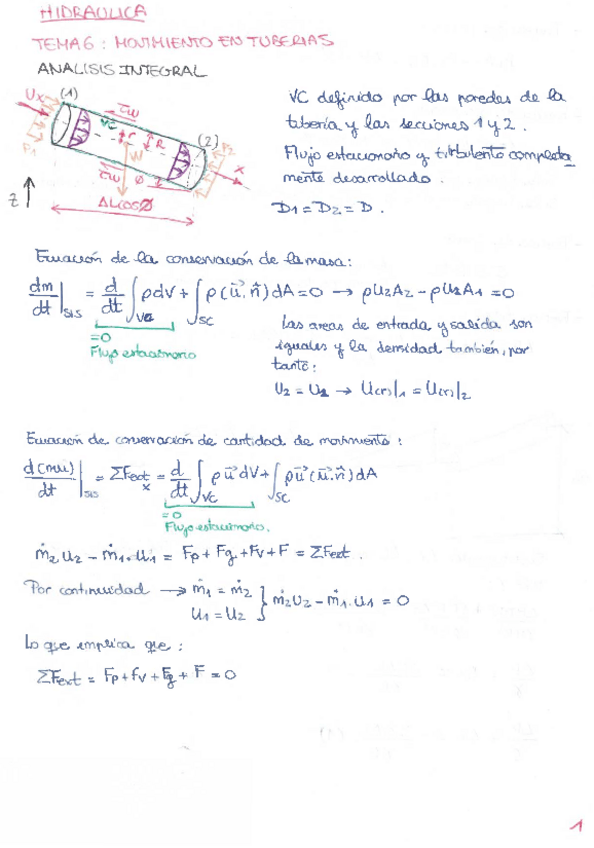 HIDRAULICA
TEMA 6: MOVIMIENTO EN TUBERIAS
ANALISIS INTEGRAL
Ux (1) τw
VC r R (2)
P1 W P2
τw Ø x
z ΔLcosØ
VC definido por las paredes de la
tubería y las secciones 1 y 2.
Flujo estacionario y turbulento completa
mente desarrollado.
D1 = D2 = D.
Ecuación de la conservación de la masa:
dm/dt|SIS = d/dt ∫VC ρdV + ∫SC ρ(u⃗.n̂)dA = 0 → ρU2A2 - ρU1A1 = 0
= 0
Flujo estacionario
Las areas de entrada y salida son
iguales y la densidad también, por
tanto:
U2 = U1 → U(r)|1 = U(r)|2
Ecuación de conservación de cantidad de movimiento:
d(mu)/dt|SIS = ΣFext x = d/dt ∫VC ρu⃗dV + ∫SC ρu⃗(u⃗.n̂)dA
= 0
Flujo estacionario.
ṁ2 U2 - ṁ1.U1 = Fp + Fg + Fv + F = ΣFext.
Por continuidad → ṁ1 = ṁ2
U1 = U2 } ṁ2U2 - ṁ1.U1 = 0
Lo que implica que:
ΣFext = Fp + Fv + Fg + F = 0
1